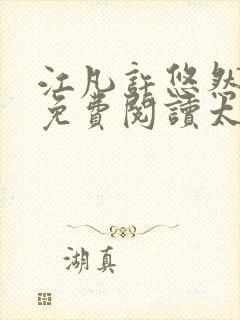 江凡許悠然
免費閱讀大
湖真